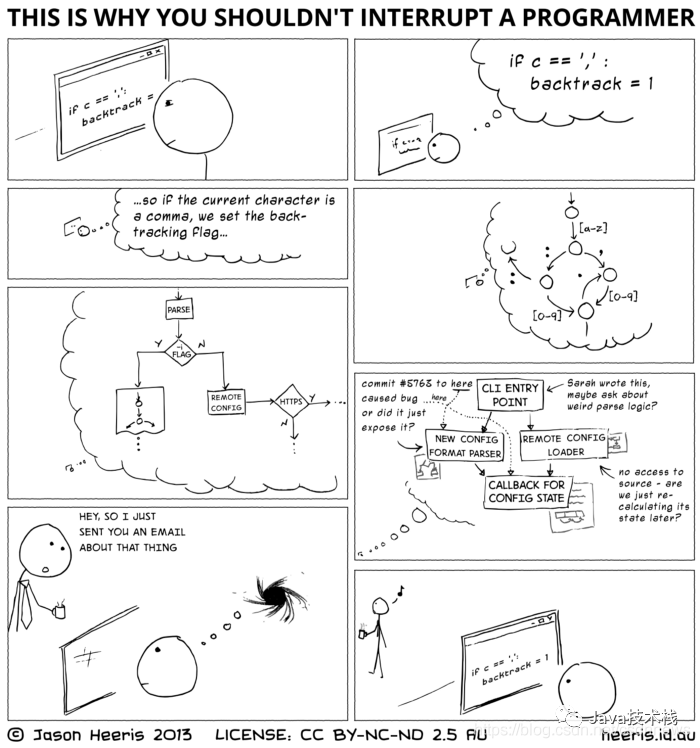 THIS IS WHY YOU SHOULDN'T INTERRUPT A PROGRAMMER
if c == ',':
backtrack =
if c == ',':
backtrack = 1
if c==q
...so if the current character is
a comma, we set the back-
tracking flag...
[a-z]
,
[0-9]
[0-9]
PARSE
Y
-i
FLAG
N
REMOTE
CONFIG
HTTPS
Y
N
commit #5763 to here
caused bug ...here
or did it just
expose it?
CLI ENTRY
POINT
Sarah wrote this,
maybe ask about
weird parse logic?
NEW CONFIG
FORMAT PARSER
REMOTE CONFIG
LOADER
CALLBACK FOR
CONFIG STATE
no access to
source - are
we just re-
calculating its
state later?
HEY, SO I JUST
SENT YOU AN EMAIL
ABOUT THAT THING
if c == ',':
backtrack = 1
Java技术栈
© Jason Heeris 2013 LICENSE: CC BY-NC-ND 2.5 AU heeris.id.au